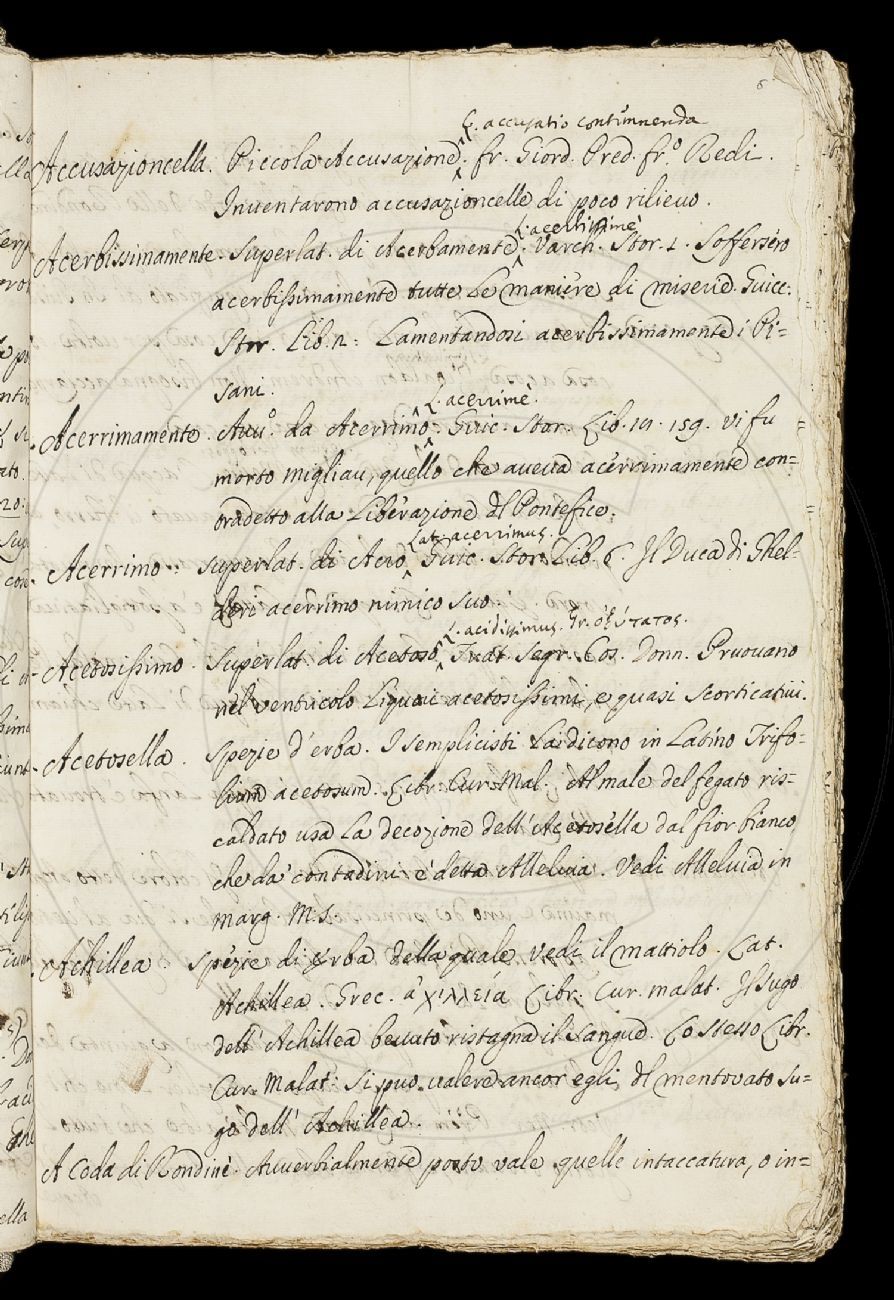 6
L. accusatio contimnenda
Accusazioncella. Piccola Accusazione. fr. Giord. Pred. fr.o Redi.
Inventarono accusazioncelle di poco rilievo.
L. acerbissimè
Acerbissimamente. Superlat. di Acerbamente. Varch. Stor. 1. Soffersero
acerbissimamente tutte le maniere di miserie. Guicc.
Stor. Lib. 2: Lamentandosi acerbissimamente i Pi=
sani.
L. acerrimè.
Acerrimamente. Avv.o da Acerrimo. Guic. Stor. Lib. 159. vi fu
morto migliau, quello che aveva acerrimamente con=
tradetto alla Liberazione del Pontefice.
Lat. acerrimus.
Acerrimo. superlat. di Acro. Guic. Stor. Lib. 6. Il Duca di Ghel=
deri acerrimo nimico suo.
L. acidissimus. Gr. ὀξύτατος.
Acetosissimo. Superlat. di Acetoso. Trat. Segr. Cos. Donn. Pruovano
nel ventricolo liquori acetosissimi, e quasi scorticativi.
Acetosella. Spezie d'erba. I semplicisti la dicono in Latino Trifo=
lium acetosum. Libr. Cur. Mal. Al male del fegato ris=
caldato usa la decozione dell'Acetosella dal fior bianco
che da' contadini è detta Alleluia. Vedi Alleluia in
marg. M.S.
Achillea. Spezie di Erba della quale vedi il Mattiolo. Lat.
Achillea. Grec. ἀχιλλεία Libr. Cur. malat. Il Sugo
dell'Achillea bevuto ristagna il sangue. Lo stesso Libr.
Cur. Malat. Si puo valere ancor egli del mentovato su=
go dell'Achillea.
A Coda di Rondine. Avverbialmente posto vale quelle intaccatura, o in=